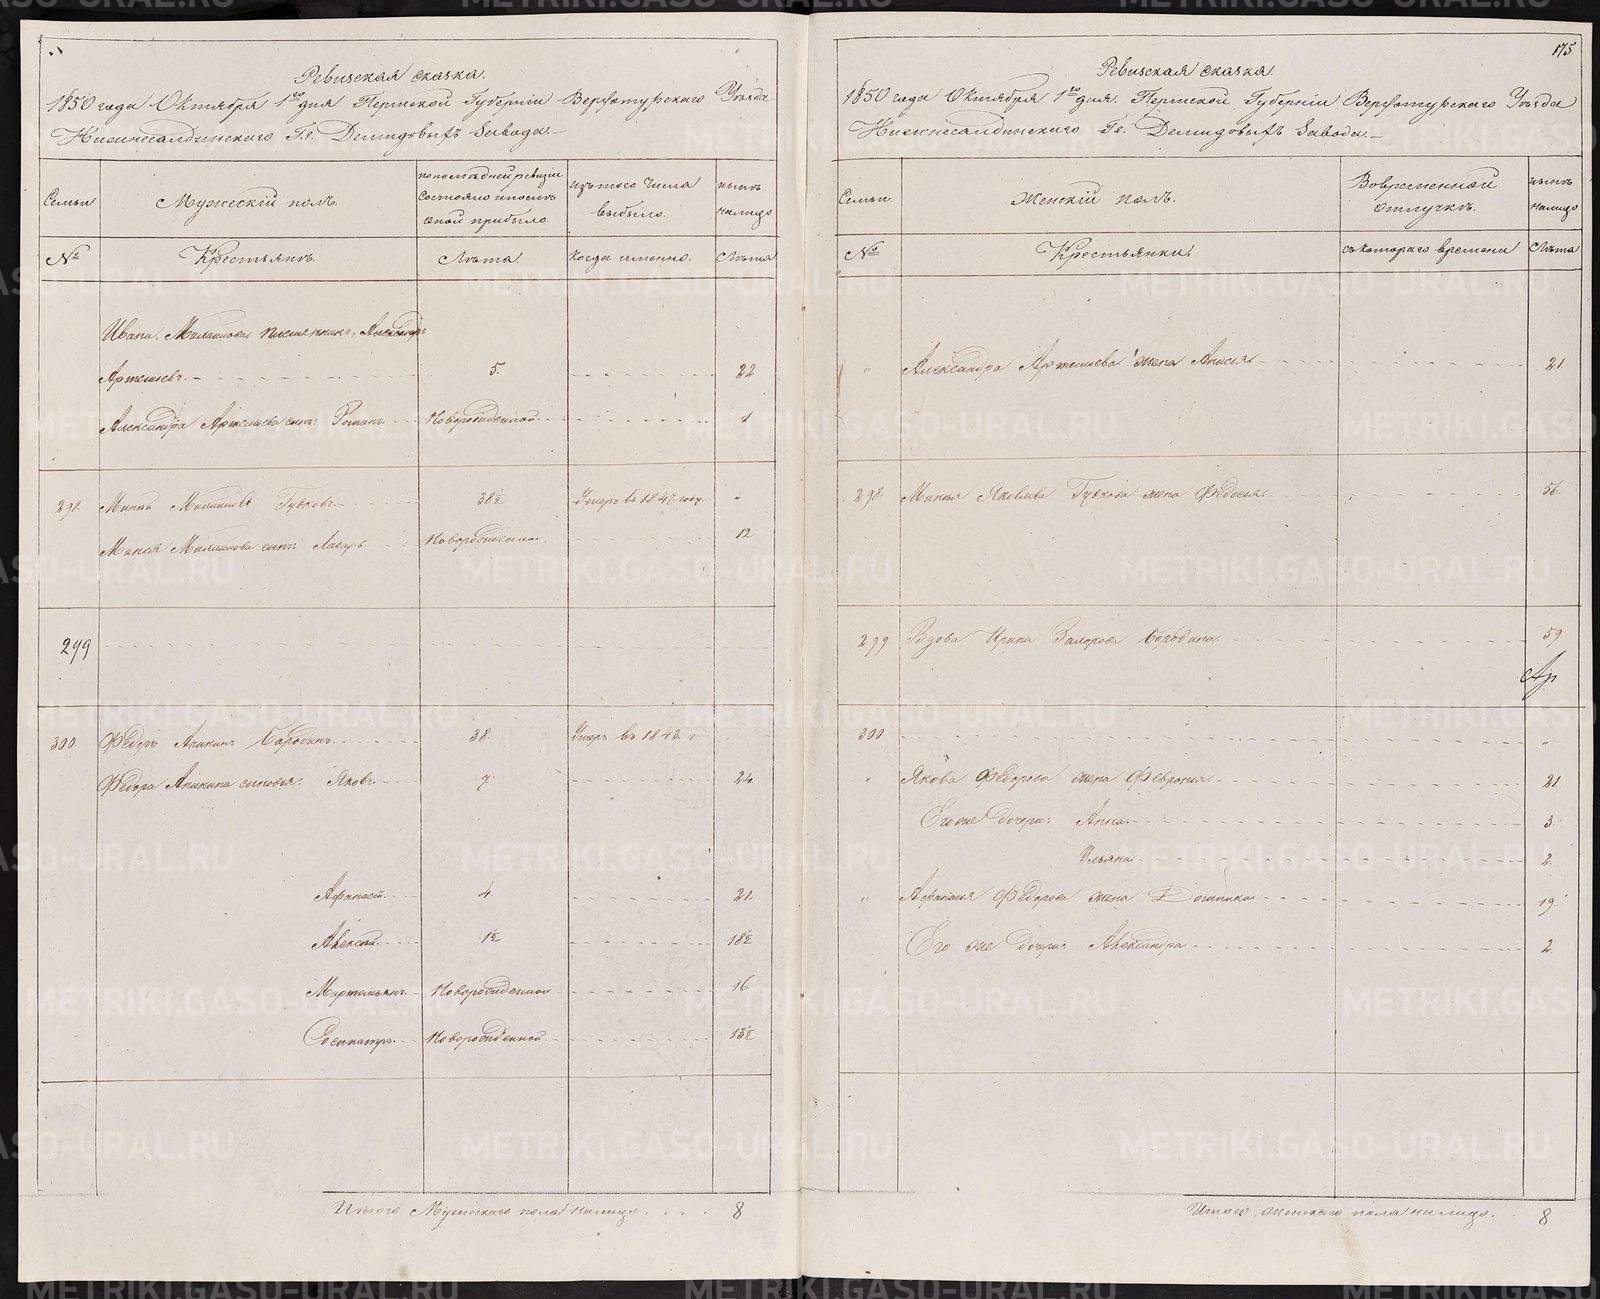 Ревизская сказка.
1850 года Октября 1го дня Пермской Губернiи Верхотурскаго Уѣзда
Нижнесалдинскаго Гг. Демидовыхъ Завода.
Семьи
Мужескiй полъ.
по последней ревизiи
состояло и после
оной прибыло.
изъ того числа
выбыло.
нынѣ
на лицо
№
Крестьянъ.
Лѣта.
Когда именно.
Лѣта
Ивана племянникъ, Александръ
Артемьевъ. 5. 22
Александра Артемьева сынъ: Романъ Новорожденной 1
298. 38½ Умеръ въ 1847 году. "
сынъ: Лазарь Новорожденна. 12
299
300 Федоръ Аникинъ Бородинъ. 38. Умеръ въ 1843. г.
Федора Аникина сыновья: Яковъ. 7. 24
Афанасiй. 4. 21.
Алексѣй. 1½ 18½
Мартемьянъ. Новорожденной 16.
Сосипатръ. Новорожденной 13½
Итого Мужескаго пола на лицо 8
175
Ревизская сказка.
1850 года Октября 1го дня. Пермской Губернiи Верхотурскаго Уѣзда
Нижнесалдинскаго Гг. Демидовыхъ Завода.
Семьи
Женскiй полъ.
Во временной
отлучкѣ.
нынѣ
на лицо
№
Крестьянки.
съ котораго времени
Лѣта
" Александра Артемьева жена Анисья 21
298. Яковлева Гускова жена Федосья. 56.
299 Вдова Ирина Бородина. 59
300 "
" Якова Федорова жена Февронья 21
Его же дочери: Анна. 3.
Ульяна. 2.
" Афанасья Федорова жена Домника 19
Его же дочери: Александра 2.
Итого женскаго пола на лицо. 8
METRIKI.GASO-URAL.RU